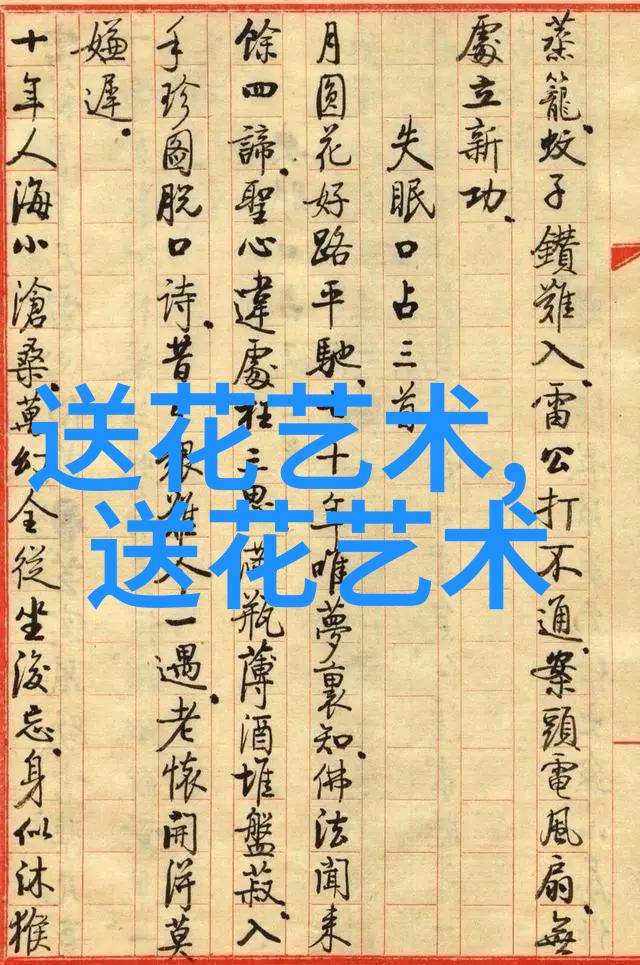 蒸籠、蚊子鑽難入、雷公打不通、案頭電風扇、無
處立新功、
失眠口占三首
月圓花好路平馳、七十年唯夢裏知、佛法聞來
餘四諦、聖心違處在三思、滿瓶薄酒堆盤菽、入
手珍圖脫口詩、昔艱難一遇、老懷開得莫
嫌遲、
十年人海小滄桑、萬幻全從坐後忘、身似沐猴
送花艺术,
送花艺术